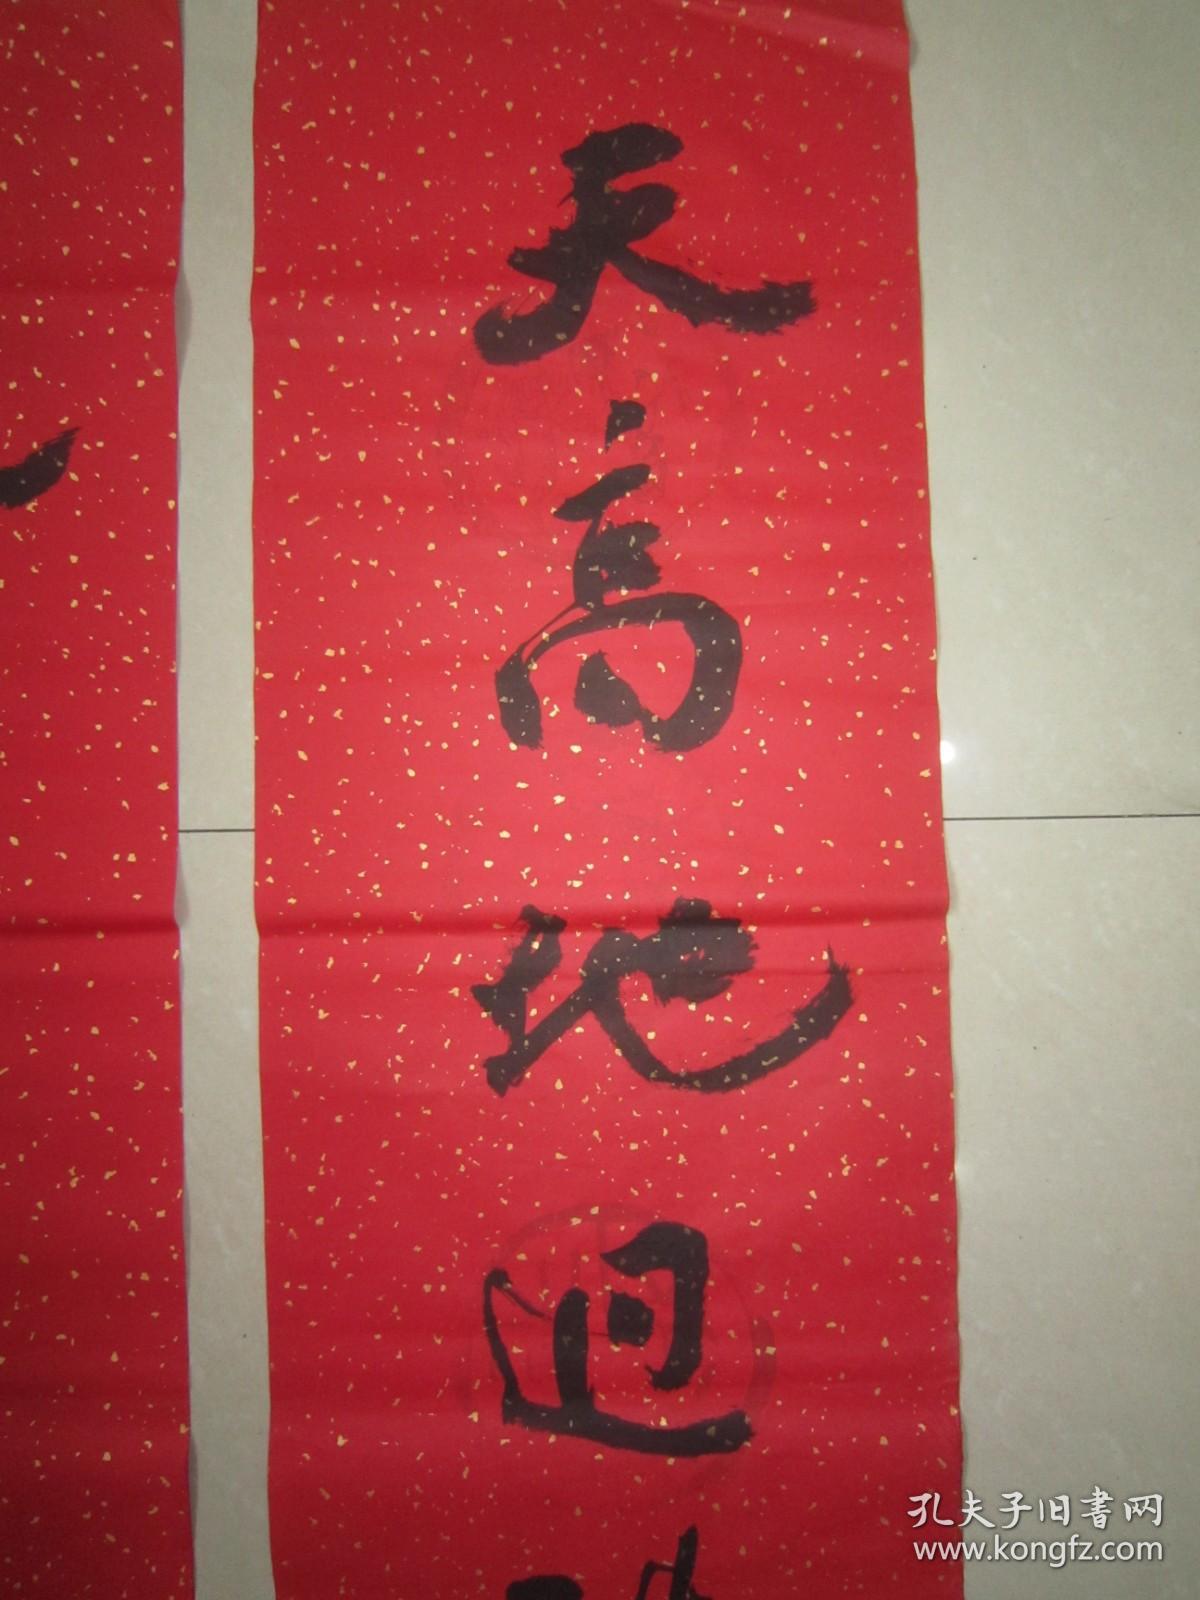 天高地迥
孔夫子旧書网
www.kongfz.com